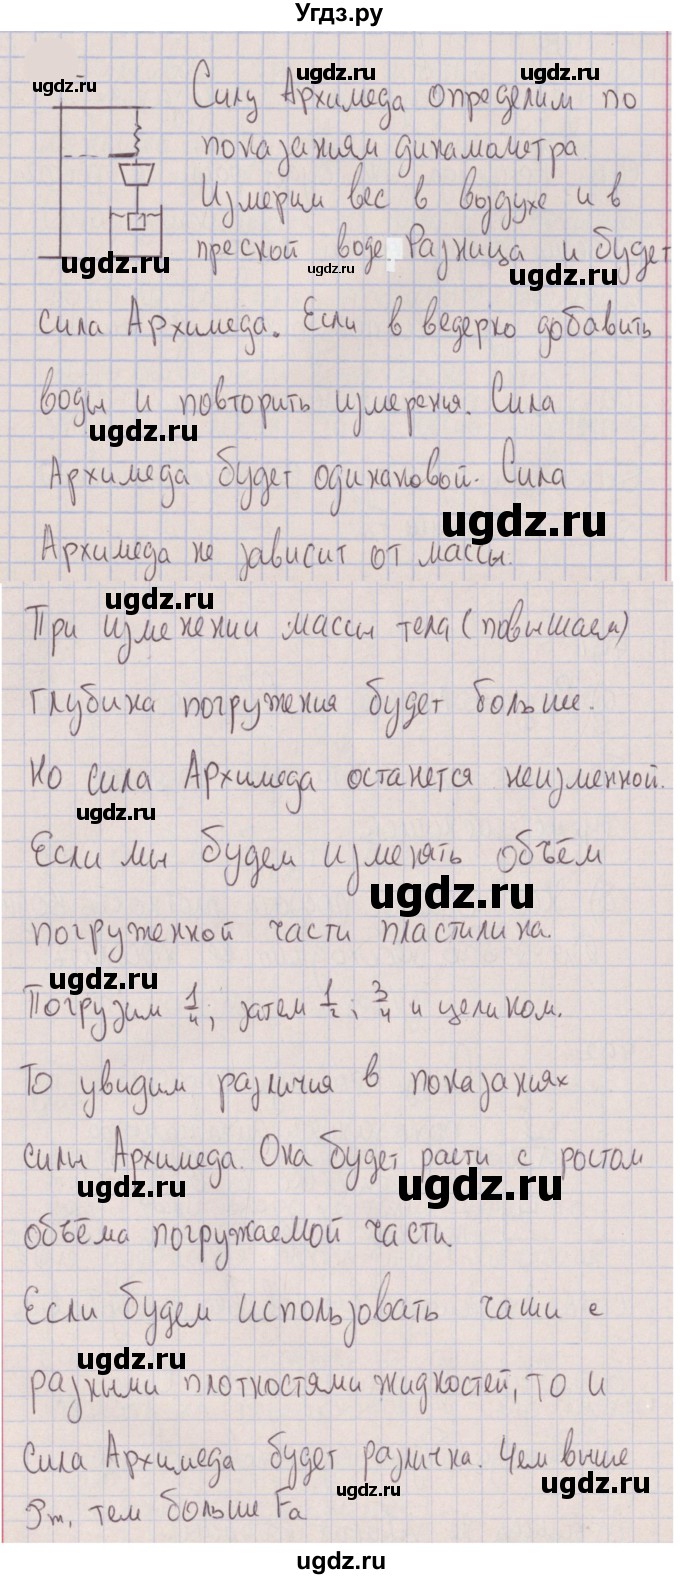 Угдз.ру
ugdz.ru ugdz.ru ugdz.ru
Силу Архимеда определим по
показаниям динамометра
Измерим вес в воздухе и в
пресной воде. Разница и будет
ugdz.ru ugdz.ru ugdz.ru
сила Архимеда. Если в ведерко добавить
воды и повторить измерения. Сила
ugdz.ru
Архимеда будет одинаковой. Сила
ugdz.ru
Архимеда не зависит от массы.
ugdz.ru
При изменении массы тела (повышаем)
глубина погружения будет больше.
Но сила Архимеда останется неизменной.
ugdz.ru
Если мы будем изменять объём
ugdz.ru
погруженной части пластилина.
ugdz.ru
Погрузим 1/4; затем 1/2; 3/4 и целиком.
То увидим различия в показаниях
силы Архимеда. Она будет расти с ростом
ugdz.ru ugdz.ru
объёма погружаемой части
Если будем использовать чаши с
ugdz.ru
разными плотностями жидкостей, то и
сила Архимеда будет различна. Чем выше
ugdz.ru ugdz.ru
тем больше Fa
ugdz.ru